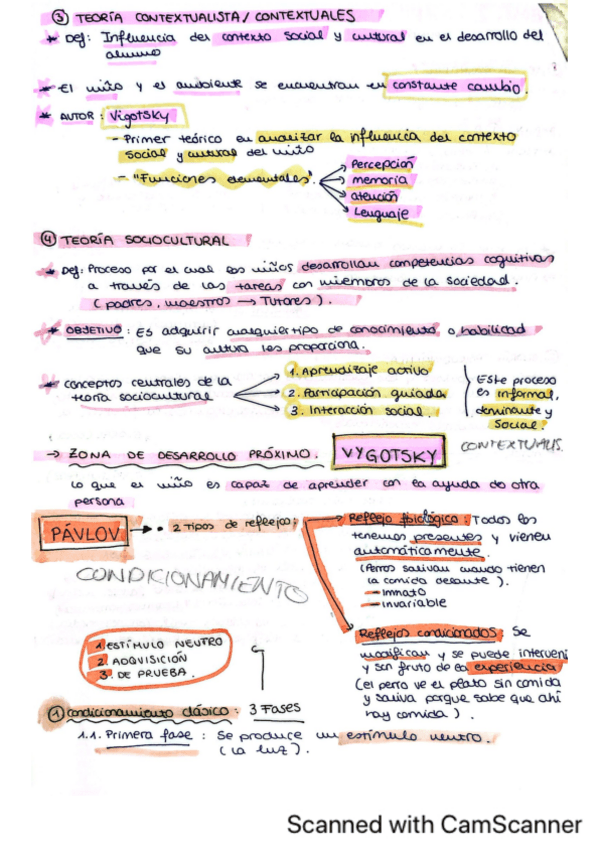 ③ TEORÍA CONTEXTUALISTA / CONTEXTUALES
* Def: Influencia del contexto social y cultural en el desarrollo del
alumno
* El niño y el ambiente se encuentran en constante cambio.
* AUTOR: Vigotsky
- Primer teórico en analizar la influencia del contexto
social y cultural del niño
- "Funciones elementales".
Percepción
memoria
atención
Lenguaje
④ TEORÍA SOCIOCULTURAL
* Def: Proceso por el cual los niños desarrollan competencias cognitivas
a través de las tareas con miembros de la sociedad.
(padres, maestros → Tutores).
* OBJETIVO: Es adquirir cualquier tipo de conocimiento o habilidad
que su cultura les proporciona.
* conceptos centrales de la
teoría sociocultural
1. Aprendizaje activo
2. Participación guiada
3. Interacción social.
Este proceso
es informal,
dominante y
social.
CONTEXTUALIS.
→ ZONA DE DESARROLLO PRÓXIMO.
VYGOTSKY
Lo que el niño es capaz de aprender con la ayuda de otra
persona
PÁVLOV → • 2 tipos de reflejos:
CONDICIONAMIENTO
Reflejo fisiológico: Todos los
tenemos presentes y vienen
automáticamente.
(Perros salivan cuando tienen
la comida delante).
- Innato
- Invariable
Reflejos condicionados: Se
modifican y se puede interveni
y son fruto de la experiencia
(el perro ve el plato sin comida
y saliva porque sabe que ahí
hay comida).
1. ESTÍMULO NEUTRO
2. ADQUISICIÓN
3. DE PRUEBA.
① condicionamiento clásico: 3 Fases
1.1. Primera fase: Se produce un estímulo neutro.
(La luz).
Scanned with CamScanner